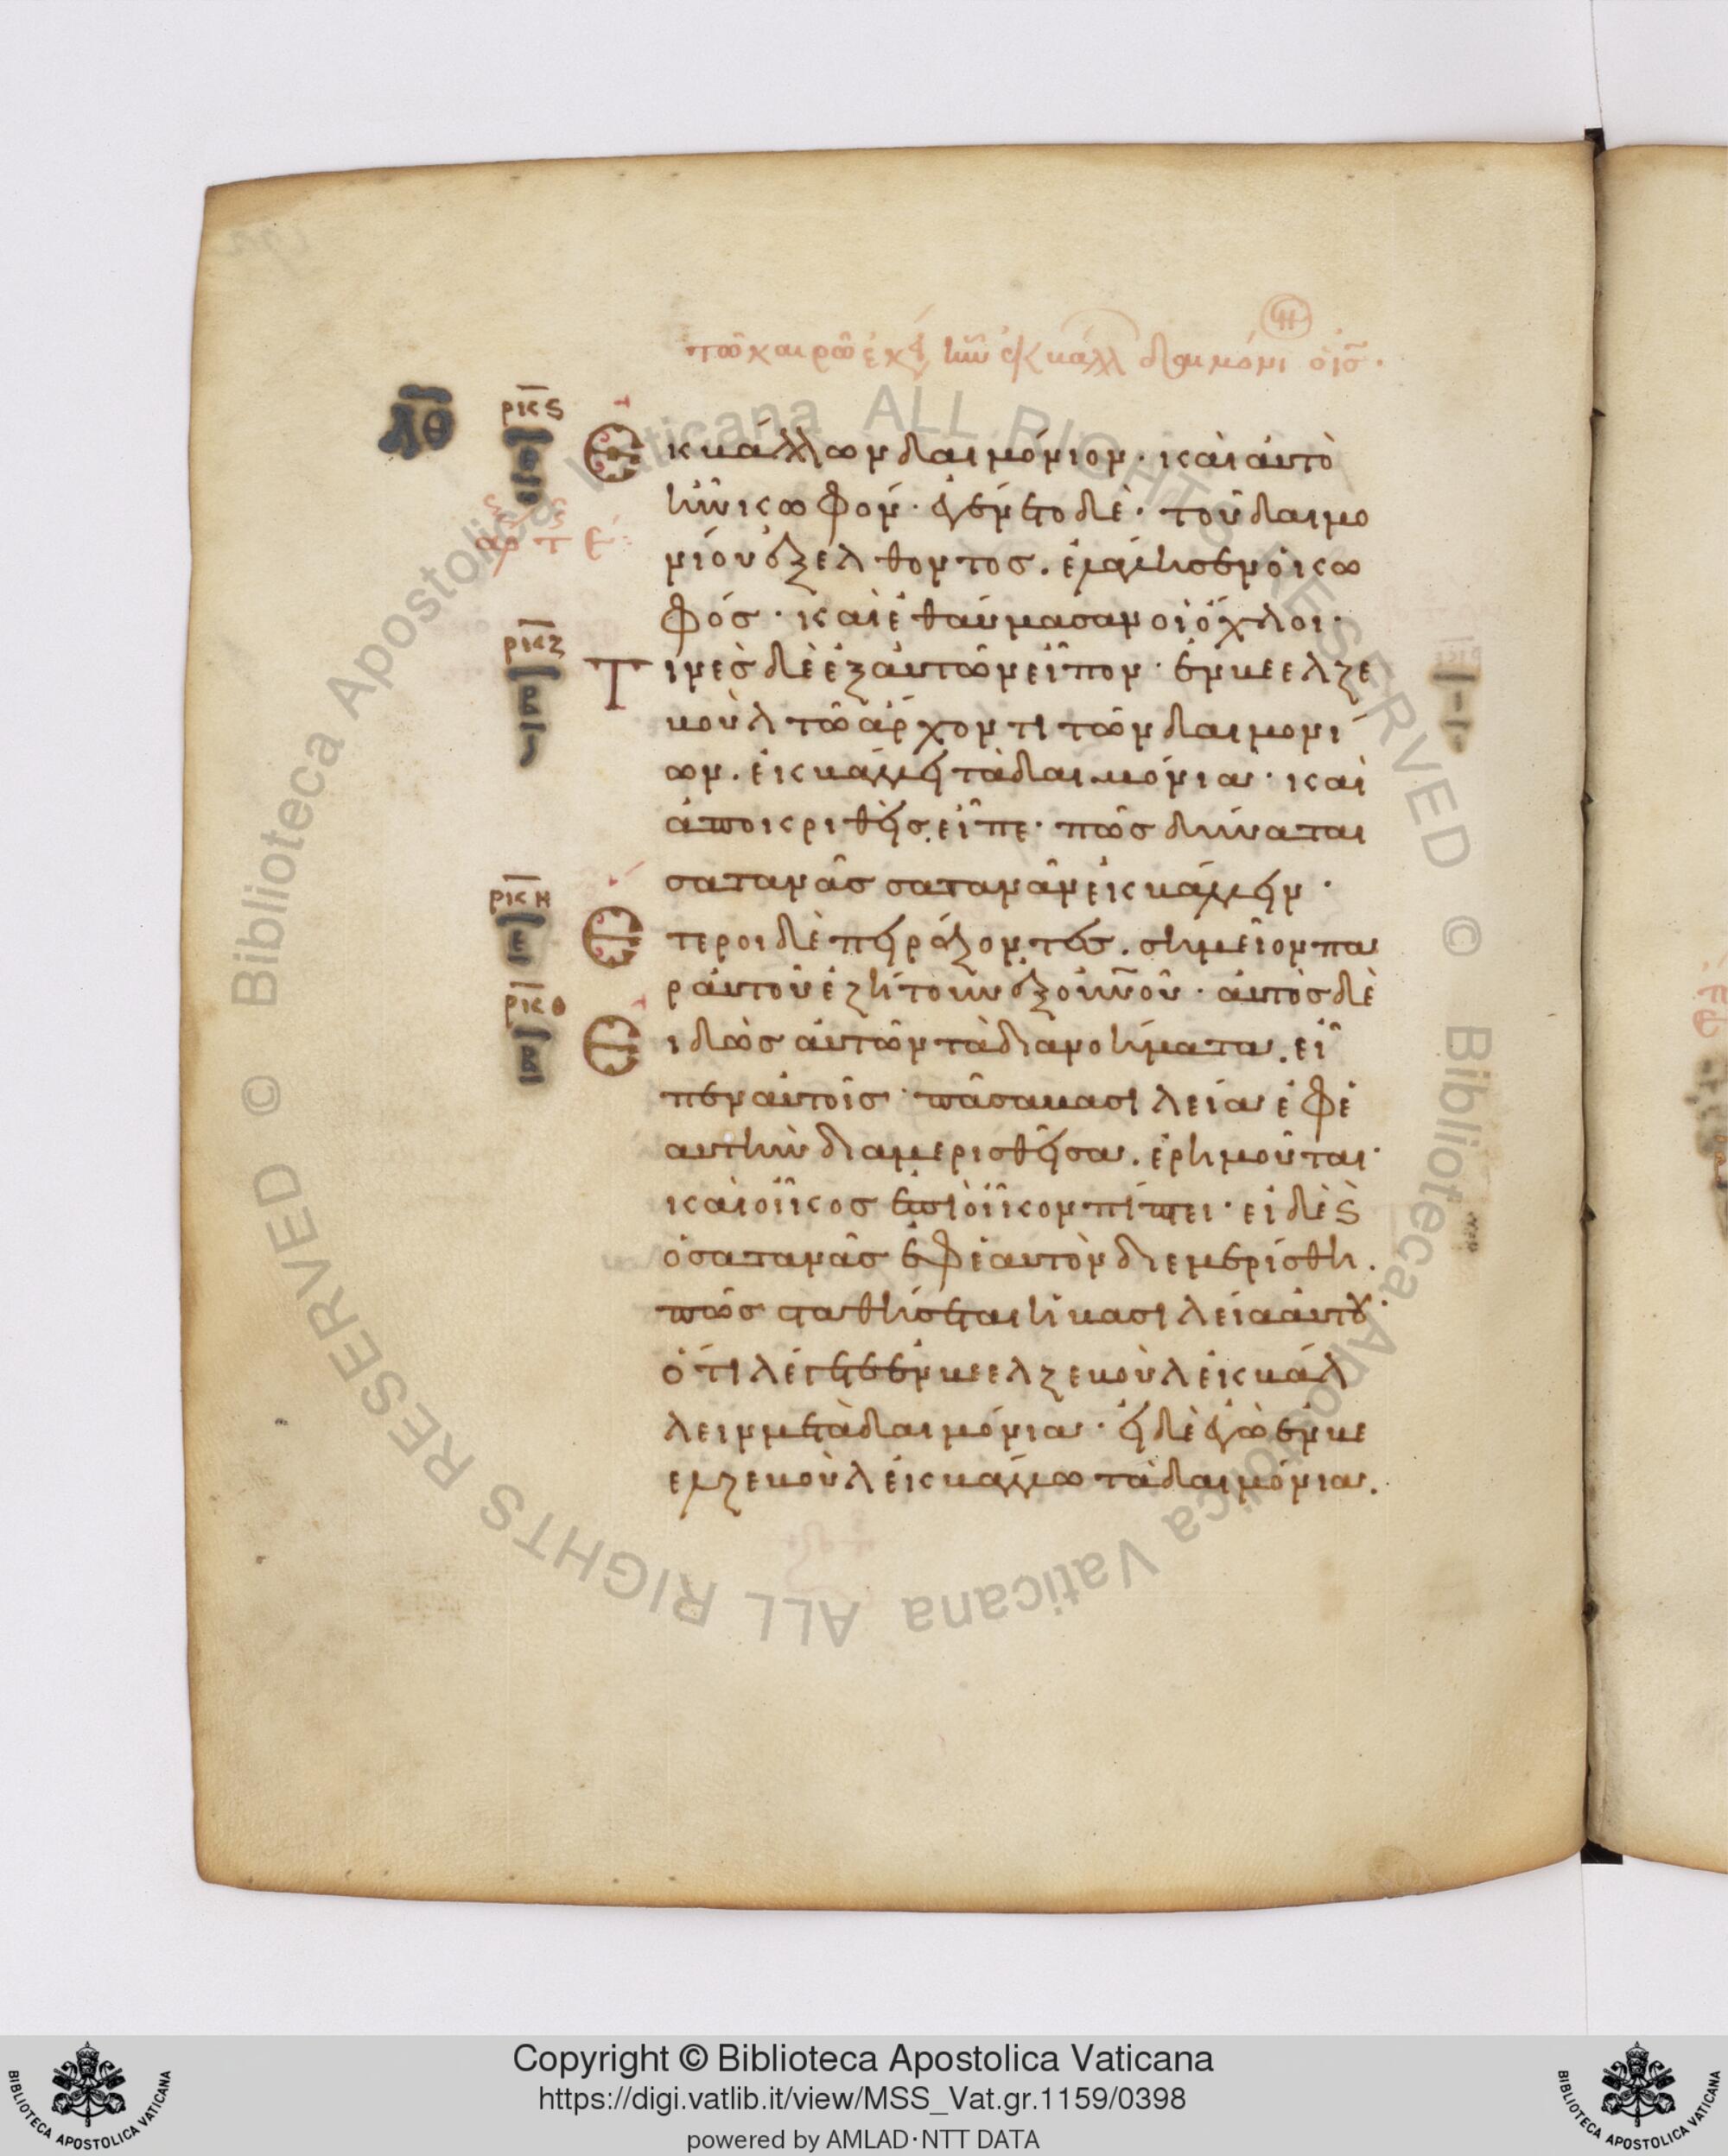 τῶ καιρῶ ἐκ ἦν ἐκβάλλ δαιμόνι ὁ ισ ·
λθ
ρκς
Εκβάλλων δαιμόνιον · καὶ αὐτὸ
ἦν κωφόν · ἐγένετο δὲ · τοῦ δαιμο
νίου ἐξελθόντος . ἐλάλησεν ὁ κω
φός · καὶ ἐθαύμασαν οἱ ὄχλοι ·
ρκζ
β
Τινὲς δὲ ἐξ αὐτῶν εἶπον · ἐν βεελζε
βοὺλ τῶ ἄρχοντι τῶν δαιμονί
ων . ἐκβάλλει τὰ δαιμόνια · καὶ
ἀποκριθεὶς, εἶπε · πῶς δύναται
σατανᾶς σατανᾶν ἐκβάλλειν ·
ρκη
ε
Ετεροι δὲ πειράζοντες . σημεῖον πα
ρ' αὐτοῦ ἐζήτουν ἐξ οὐνοῦ · αὐτὸς δὲ
ρκθ
β
Ειδὼς αὐτῶν τὰ διανοήματα . εἶ
πεν αὐτοῖς · πᾶσα βασιλεία ἐφ' ἑ
αυτὴν διαμερισθεῖσα . ἐρημοῦται ·
καὶ οἶκος ἐπὶ οἶκον πίπτει · εἰ δὲ ϛ
ὁ σατανᾶς ἐφ' ἑαυτὸν διεμερίσθη .
πῶς σταθήσεται ἡ βασιλεία αὐτοῦ ·
ὅτι λέγετε ἐν βεελζεβοὺλ ἐκβάλ
λειν με τὰ δαιμόνια · εἰ δὲ ἐγὼ ἐν βε
ελζεβοὺλ ἐκβάλλω τὰ δαιμόνια .
© Biblioteca Apostolica Vaticana ALL RIGHTS RESERVED © Biblioteca Apostolica Vaticana ALL RIGHTS RESERVED
Copyright © Biblioteca Apostolica Vaticana
https://digi.vatlib.it/view/MSS_Vat.gr.1159/0398
powered by AMLAD·NTT DATA
BIBLIOTECA APOSTOLICA VATICANA
BIBLIOTECA APOSTOLICA VATICANA